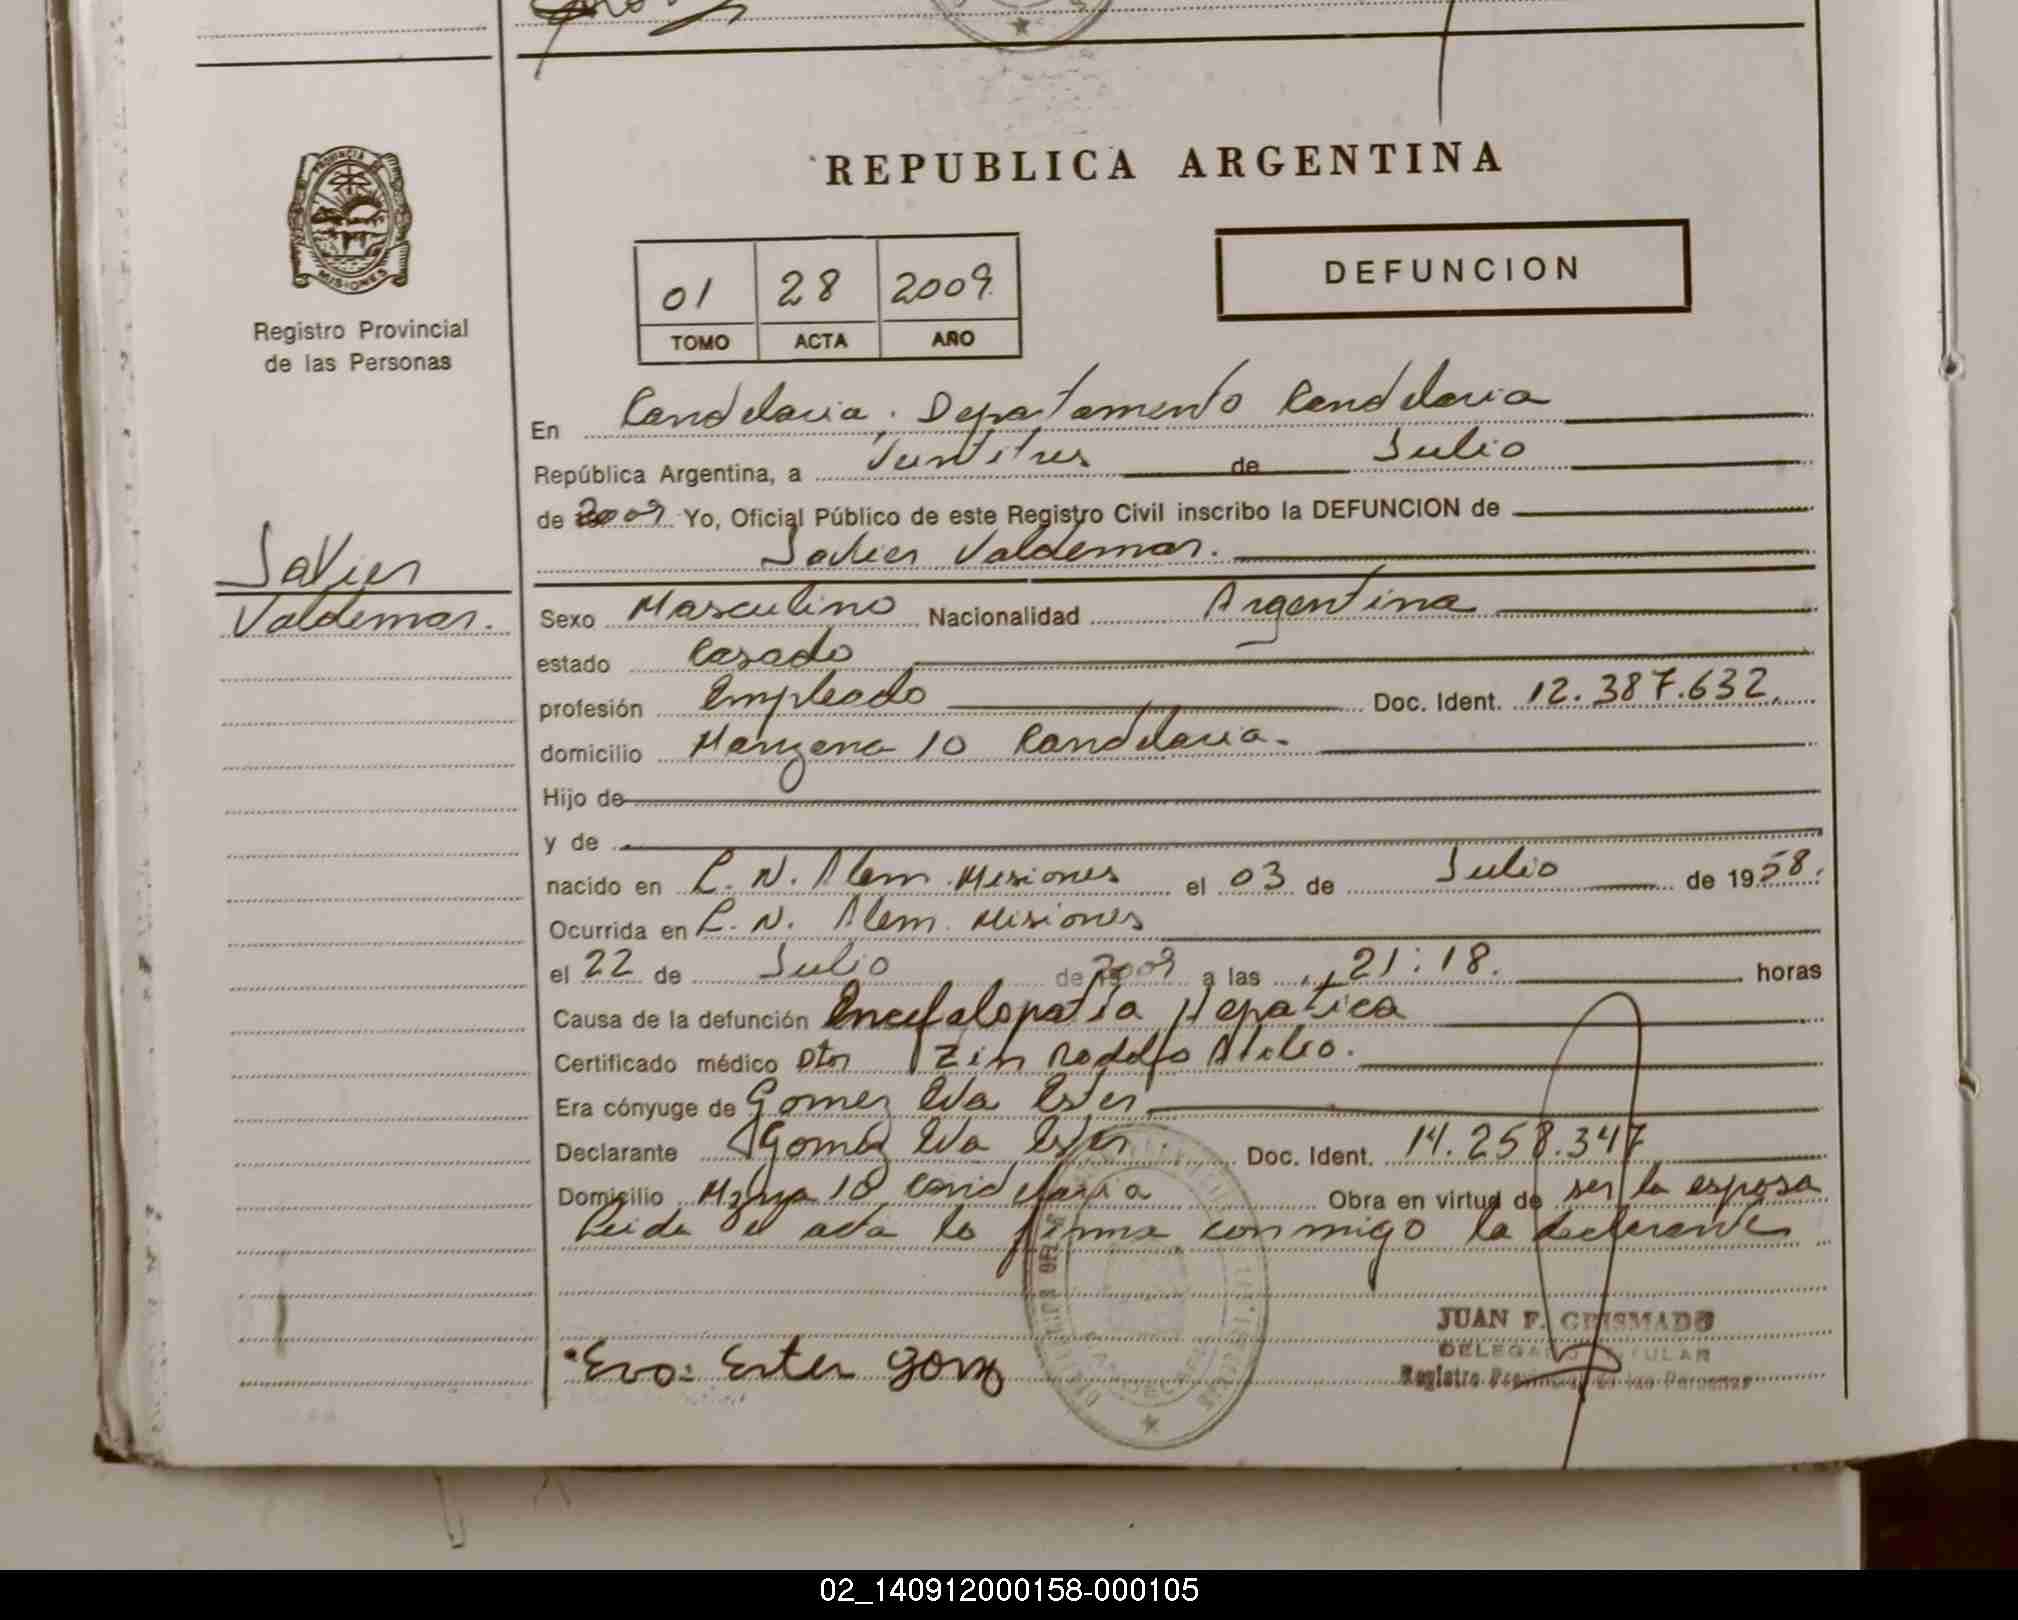 REPUBLICA ARGENTINA
PROVINCIA DE
MISIONES
Registro Provincial
de las Personas
01 28 2009
TOMO ACTA AÑO
DEFUNCION
En Candelaria, Departamento Candelaria
República Argentina, a Veintitres de Julio
de 2009 Yo, Oficial Público de este Registro Civil inscribo la DEFUNCION de
Javier Valdemar.
Javier
Valdemar.
Sexo Masculino Nacionalidad Argentina
estado Casado
profesión Empleado Doc. Ident. 12.387.632.
domicilio Manzana 10 Candelaria.
Hijo de
y de
nacido en L. N. Alem. Misiones el 03 de Julio de 1958.
Ocurrida en L. N. Alem. Misiones
el 22 de Julio de 2009 a las 21:18. horas
Causa de la defunción Encefalopatía Hepatica
Certificado médico Dtor Zin Rodolfo Atilio.
Era cónyuge de Gomez Eva Ester
Declarante Gomez Eva Ester. Doc. Ident. 14.258.347
Domicilio Mzna 10 Candelaria Obra en virtud de ser la esposa
Leida el acta la firma conmigo la declarante
JUAN F. GRISMADO
DELEGADO TITULAR
Registro Provincial de las Personas
Eva Ester Gomz
02_140912000158-000105